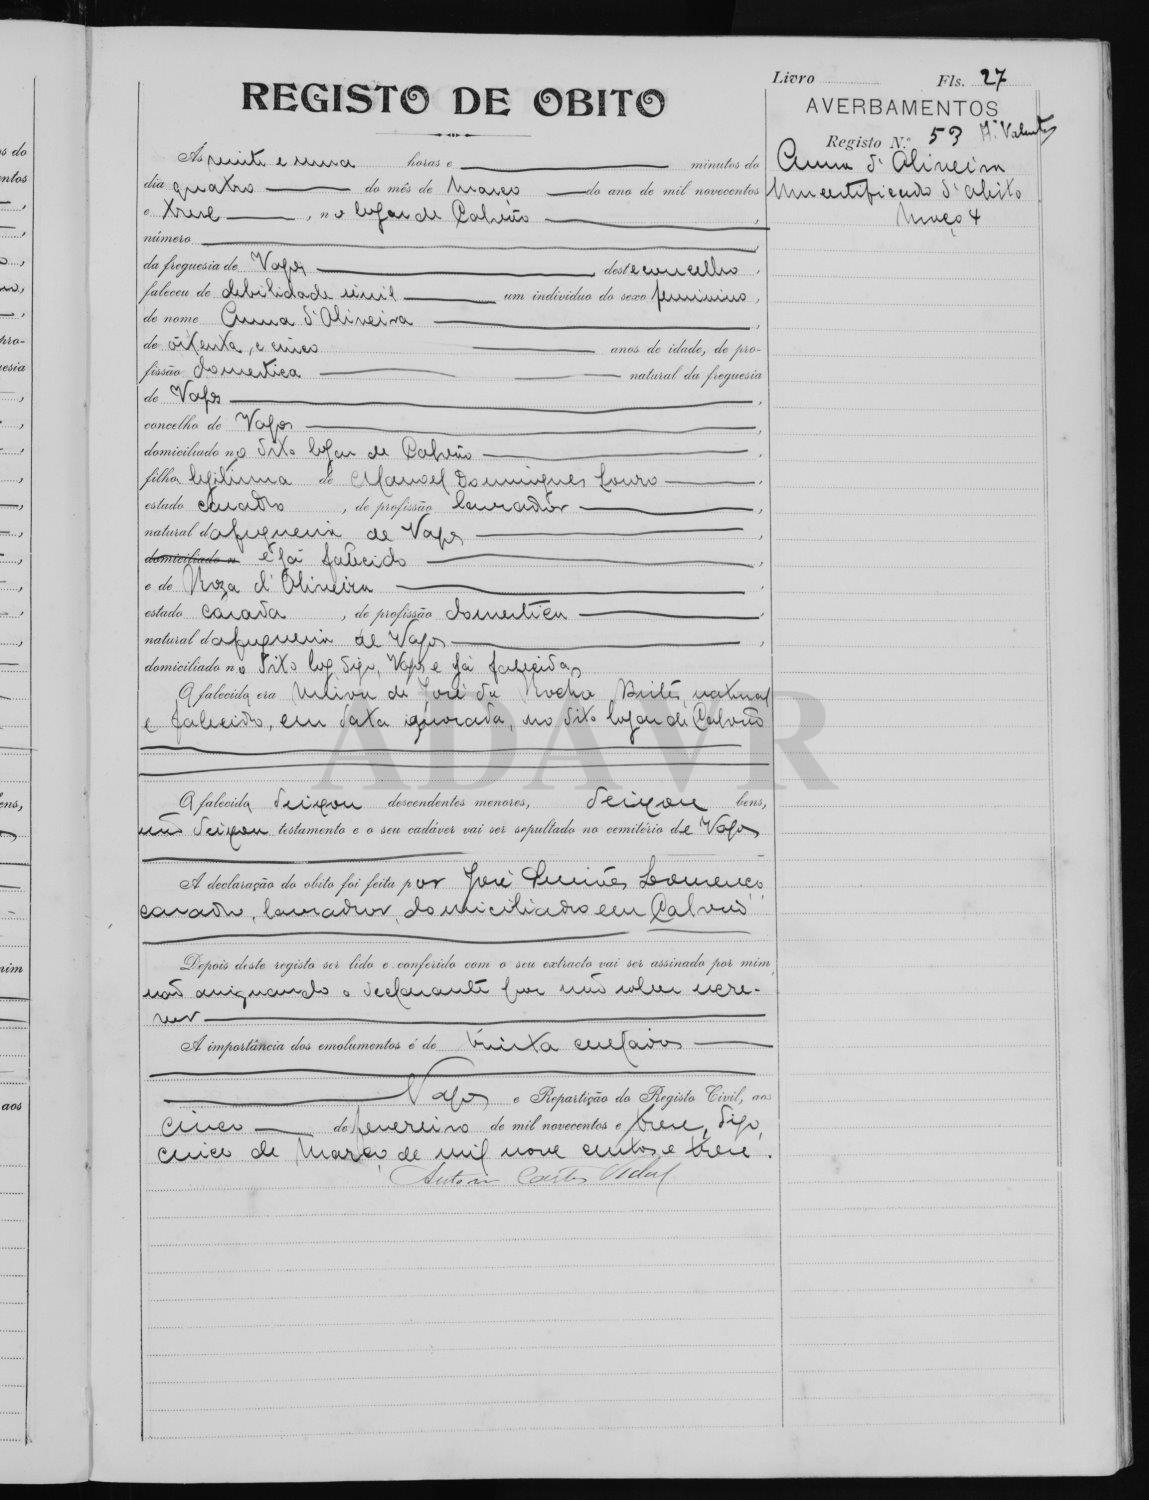 Livro Fls. 27
REGISTO DE OBITO
AVERBAMENTOS
Registo N.º 53
Anna d'Oliveira
Um certificado d'obito
Março 4
Ás vinte e uma horas e minutos do
dia quatro do mês de Março do ano de mil novecentos
e treze, no logar de Calvão,
número,
da freguesia de Vagos, deste concelho,
faleceu de debilidade senil um individuo do sexo feminino,
de nome Anna d'Oliveira,
de oitenta e cinco anos de idade, de pro-
fissão domestica natural da freguesia
de Vagos,
concelho de Vagos,
domiciliado no dito logar de Calvão,
filha legitima de Manoel Domingues Louro,
estado casado, de profissão lavrador,
natural da freguesia de Vagos,
domiciliado n é já falecido,
e de Roza d'Oliveira,
estado casada, de profissão domestica,
natural da freguesia de Vagos,
domiciliado no dito log digo, Vagos e já falecida,
A falecida era viuva de José da Rocha Brites, natural
e falecido, em data ignorada, no dito logar de Calvão
A falecida deixou descendentes menores, deixou bens,
não deixou testamento e o seu cadáver vai ser sepultado no cemitério de Vagos
A declaração do obito foi feita por José Lourenço,
casado, lavrador, domiciliado em Calvão
Depois deste registo ser lido e conferido com o seu extracto vai ser assinado por mim,
não assignando o declarante por não saber escre-
ver
A importância dos emolumentos é de trinta centavos
Vagos e Repartição do Registo Civil, aos
cinco de fevereiro de mil novecentos e treze, digo,
cinco de Março de mil nove centos e treze.
Antonio Vidal
ADAVR